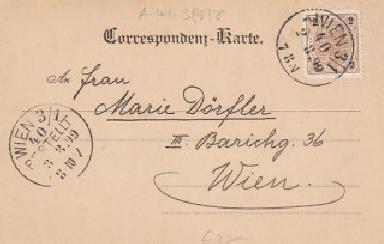 Correspondenz-Karte.
An Frau
Marie Dörfler
III. Barichg. 36
Wien.
WIEN 3/1
40
BESTELLT
WIEN 3/1
40